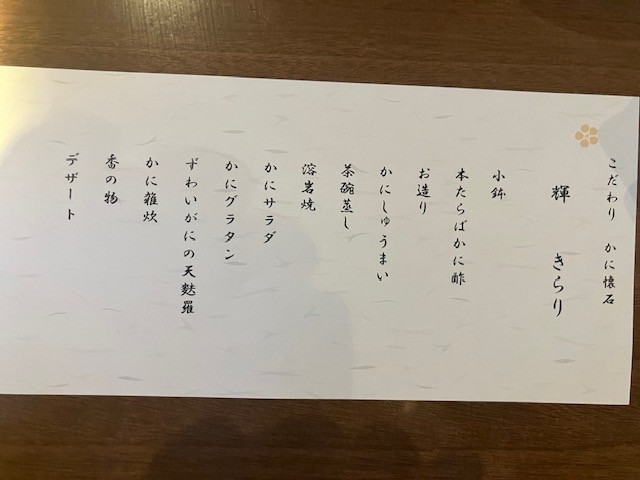 こだわり かに懐石
輝 きらり
小鉢
本たらばかに酢
お造り
かにしゅうまい
茶碗蒸し
溶岩焼
かにサラダ
かにグラタン
ずわいがにの天麩羅
かに雑炊
香の物
デザート